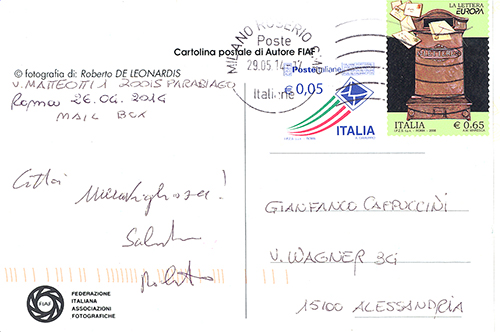 Cartolina postale di Autore FIAF
© fotografia di: Roberto DE LEONARDIS
V. MATTEOTTI 1 20015 PARABIAGO
Roma 26.04.2014
MAIL BOX
Città Meravigliosa!
Saluti
Roberto
FIAF
FEDERAZIONE
ITALIANA
ASSOCIAZIONI
FOTOGRAFICHE
MILANO ROSERIO C.M.
Poste
29.05.14-17
Italiane
Posteitaliane
€ 0,05
ITALIA
LA LETTERA
EUROPA
ITALIA
€ 0,65
GIANFANCO CAPPUCCINI
V. WAGNER 3G
15100 ALESSANDRIA